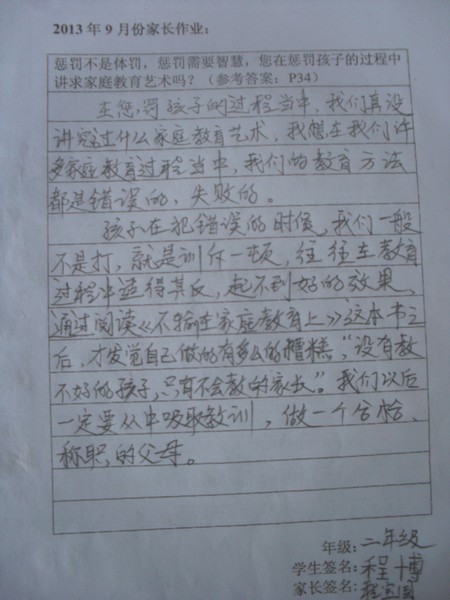 2013 年 9 月份家长作业：
惩罚不是体罚，惩罚需要智慧，您在惩罚孩子的过程中
讲求家庭教育艺术吗？（参考答案：P34）
在惩罚孩子的过程当中，我们真没
讲究过什么家庭教育艺术，我想在我们许
多家庭教育过程当中，我们的教育方法
都是错误的，失败的。
孩子在犯错误的时侯，我们一般
不是打，就是训斥一顿，往往在教育
过程中适得其反，起不到好的效果，
通过阅读《不输在家庭教育上》这本书之
后，才发觉自己做的有多么的糟糕，“没有教
不好的孩子，只有不会教的家长”。我们以后
一定要从中吸取教训，做一个合格、
称职，的父母。
年级：二年级
学生签名：程博
家长签名：程